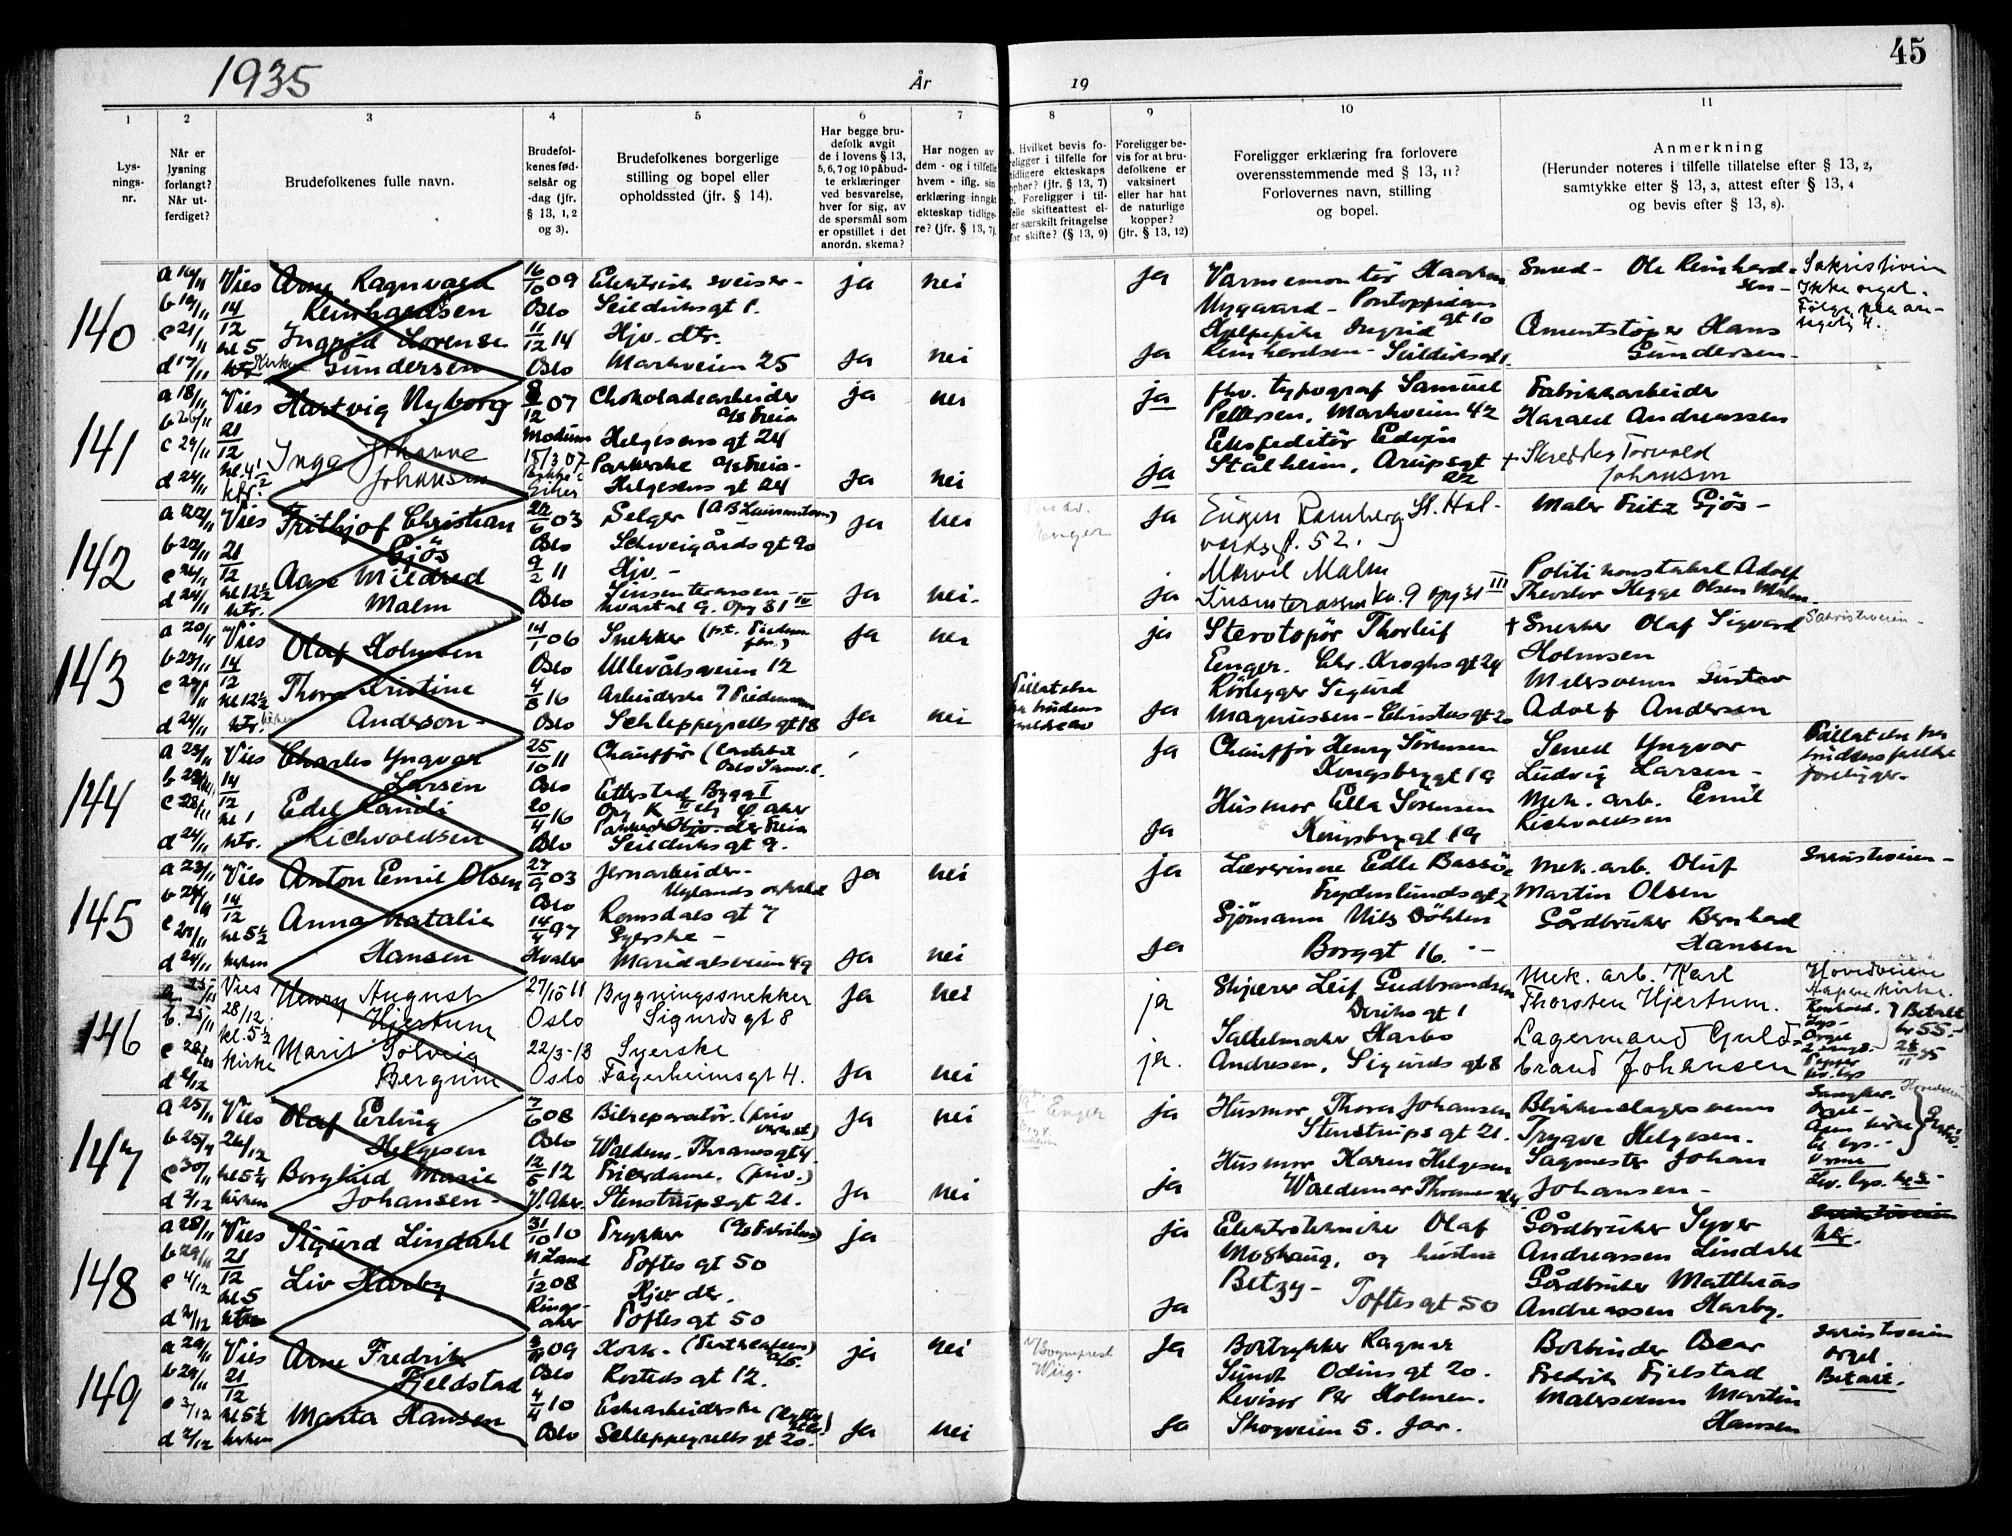 1935
År
19
45
1
2
3
4
5
6
7
8
9
10
11
Lysnings-nr.
Når er lysning forlangt? Når utferdiget?
Brudefolkenes fulle navn.
Brudefolkenes fødselsår og -dag (jfr. § 13, 1, 2 og 3).
Brudefolkenes borgerlige stilling og bopel eller opholdssted (jfr. § 14).
Har begge brudefolk avgit de i lovens § 13, 5, 6, 7 og 10 påbudte erklæringer ved besvarelse, hver for sig, av de spørsmål som er opstillet i det anordn. skema?
Har nogen av dem - og i tilfelle hvem - iflg. sin erklæring inngått ekteskap tidligere? (jfr. § 13, 7).
Hvilket bevis foreligger i tilfelle for tidligere ekteskaps ophør? (jfr. § 13, 7) Foreligger i tilfelle skifteattest eller særskilt fritagelse for skifte? (§ 13, 9)
Foreligger bevis for at brudefolkene er vaksinert eller har hat de naturlige kopper? (jfr. § 13, 12)
Foreligger erklæring fra forlovere overensstemmende med § 13, 11? Forlovernes navn, stilling og bopel.
Anmerkning
(Herunder noteres i tilfelle tillatelse efter § 13, 2, samtykke efter § 13, 3, attest efter § 13, 4 og bevis efter § 13, 8).
140
a 16/11 Vies Arne Ragnvald Reinhardsen 16/10 09 Oslo Elektrisk sveiser - Seilduksgt 1. ja nei ja
b 19/11 14/12 kl 5
c 21/11 Ingrid Lorense Gundersen 11/12 14 Oslo Hjv. dtr. Markveien 25 ja nei ja
d 17/11 Kirken
Varmemontør Haakon Nygaard - Pontoppidans gt 10
Ingrid Reinhardsen - Seilduksgt 1.
Smed - Ole Reinhardsen -
Hans Gundersen -
Sakristiveien
Ikke orgel.
141
a 18/11 Vies Hartvig Nyborg 8/12 07 Modum Chokoladearbeider A/s Freia Helgesens gt 24 ja nei ja
b 20/11 21/12
c 29/11 Inga Johanne Johansen 15/3 07 Pakkerske A/s Freia - Helgesens gt 24 ja nei ja
d 24/11
fhv. typograf Samuel Pettersen, Markveien 42
Ekspeditør Edvin Stålheim, Arupsgt 22
Fabrikkarbeider Harald Andreassen
+ Skredder Torvald Johansen
142
a 22/11 Vies Frithjof Christian Gjös 22/6 03 Oslo Selger Schweigårds gt 90 ja nei ja
b 22/11 21/12 kl 12½
c 26/11 Aase Mildred Malm 9/2 11 Oslo Hjv. - kvartal 9. Opg 31 IV ja nei - ja
d 24/11 ktr.
Eugen Ramberg St. Halvardsgt. 52.
Marvel Malm kv. 9 opg 31 III
Maler Fritz Gjös -
Politikonstabel Adolf Theodor Hegge Olsen Malm.
143
a 20/11 Vies Olaf Holmsen 14/1 06 Oslo Snekker Ullevålsveien 12 ja nei ja
b 23/11 14/12 kl 12½
c 27/11 Thora Kristine Anderson - 4/3 16 Oslo Arbeiderske Schleppegrells gt 18 ja nei ja
d 24/11 ktr. kirken
Tillatelse
Sterotopör Thorleif Enger. Chr. Kroghs gt 24
Rörlegger Sigurd Magnussen - Christies gt 20
+ Snekker Olaf Sigvard Holmsen
Malersvenn Gustav Adolf Andersen
Sakristiveien -
144
a 23/11 Vies Charles Yngvar Larsen 25/10 11 Oslo Chauffør Etterstad Bygg I ja
b 14/12 kl 1
c 28/11 Edel Randi Richvoldsen 20/4 16 Oslo Pakkerske Hjv. dtr Freia Seilduks gt 9. ja
d 24/11 ktr.
Chauffør Henry Sørensen Kongsberggt 19
Husmor Ella Sørensen Kongsberg gt 19
Smed Yngvar Ludvig Larsen -
Mek. arb. Emil Richvoldsen
Tillatelse fra brudens foreligger -
145
a 23/11 Vies Anton Emil Olsen 27/9 03 Oslo Jernarbeider - Nylands verksted Romsdals gt 7 ja nei ja
b 14/12 kl 5½
c 28/11 Anna Natalie Hansen 14/4 97 Hvaler Syerske - Maridalsveien 49 ja nei ja
d 24/11 kirken
Lærerinne Edle Bassøe Frydenlunds gt 2
Sjømann Nils Döhlen Borggt 16. -
Mek. arb. Oluf Martin Olsen
Gårdbruker Bernhard Hansen
146
a 25/11 Vies Henry August Hjertum 27/10 11 Oslo Bygningssnekker Sigurds gt 8 ja nei ja
b. 25/11 28/12. kl. 5½ kirke
c Marit Solveig Bergum 22/3-13 Oslo Syerske Fagerheimsgt 4. ja nei ja.
d 2/12
Skjærer Leif Gudbrandsen gt 1
Sadelmaker Harbo Andresen, Sigurds gt 8
Mek. arb. Karl Thorsten Hjertum.
Lagermand Guldbrand Johansen
Hovedveien
Åpen kirke.
Orgel
Betalt kr 55. -
147
a 25/11 Vies Olaf Erling Helgesen 7/6 08 Oslo Bilreparatör. Waldem. Thranesgt 4 ja nei ja
b 25/11 26/12 kl 5½
c 30/11 Borghild Marie Johansen - 12/5 12 V. Aker. Frierdame. (priv.) Stenstrups gt 21. ja nei ja
d 2/12 kirken
Enger
Husmor Thora Johansen Stenstrups gt 21.
Husmor Karen Helgesen Waldemar Thranes
Blikkenslagersvenn Trygve Helgesen.
Sagmester Johan Johansen -
Orgel -
148
a 28/11 Vies Sigurd Lindahl 31/10 10 N. Land Trykker Toftes gt 50 ja ja
b 29/11 21/12 kl 5
c 4/12 Liv Harby 1/12 08 Ringsaker Hjv dtr. Toftes gt 50 ja
d 2/12
Elektrotekniker Olaf Moshaug, og hustru Betzy - Toftes gt 50
Gårdbruker Syver Andreassen Lindahl
Gårdbruker Matthias Andreassen Harby.
149
a 29/11 Vies Arne Fredrik Fjeldstad 09 Oslo Kokk - Rosteds gt 12. ja nei ja
b 29/11 21/12 kl 5½
c 3/12 Marta Hansen 4/4 10 Oslo Eskearbeiderske Schleppegrells gt 20. ja nei ja
d 2/12 kirken
v/ Sogneprest Wiig.
Boktrykker Ragnar Sundt Odins gt 20.
Revisor Per Holmen. Skogveien 5. Jar.
Bokbinder Oscar Fredrik Fjelstad
Malersvenn Martin Hansen
Sakristiveien
Orgel.
Betalt.